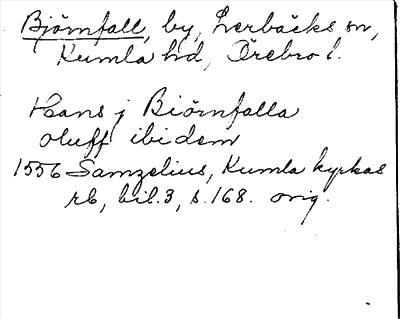 Björnfall, by, Lerbäcks sn,
Kumla hd, Örebro l.
Hans j Biörnfalla
oluff ibidem
1556 Samzelius, Kumla kyrkas
rb, bil. 3, s. 168. orig.